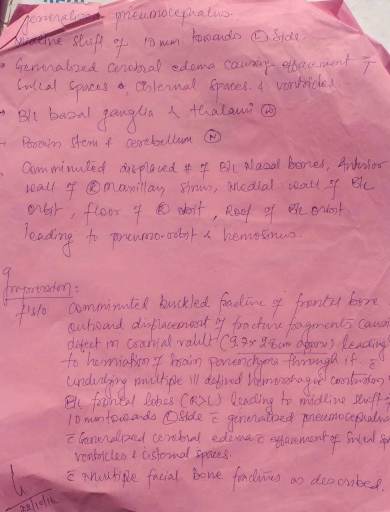 generalised pneumocephalus.
midline shift of 10 mm towards Ⓛ side
• Generalised cerebral edema causing effacement of
sulcal spaces & cisternal spaces & ventricles
→ B/L basal ganglia & thalami Ⓝ
→ Brain stem & cerebellum Ⓝ
• Comminuted displaced # of B/L Nasal bones, Anterior
wall of Ⓡ maxillary sinus, medial wall of B/L
orbit, floor of Ⓡ orbit, Roof of B/L orbit
leading to pneumo-orbit & hemosinus.
Impression:
f/s/o comminuted buckled fracture of frontal bone
outward displacement of fracture fragments causing
defect in cranial vault (9.7 x 2.8 cm approx) leading
to herniation of brain parenchyma through it c̄
underlying multiple ill defined hemorrhagic contusions
B/L frontal lobes (R>L) leading to midline shift of
10 mm towards Ⓛ side c̄ generalised pneumocephalus
c̄ Generalised cerebral edema c̄ effacement of sulcal spaces
ventricles & cisternal spaces.
c̄ multiple facial bone fractures as described.